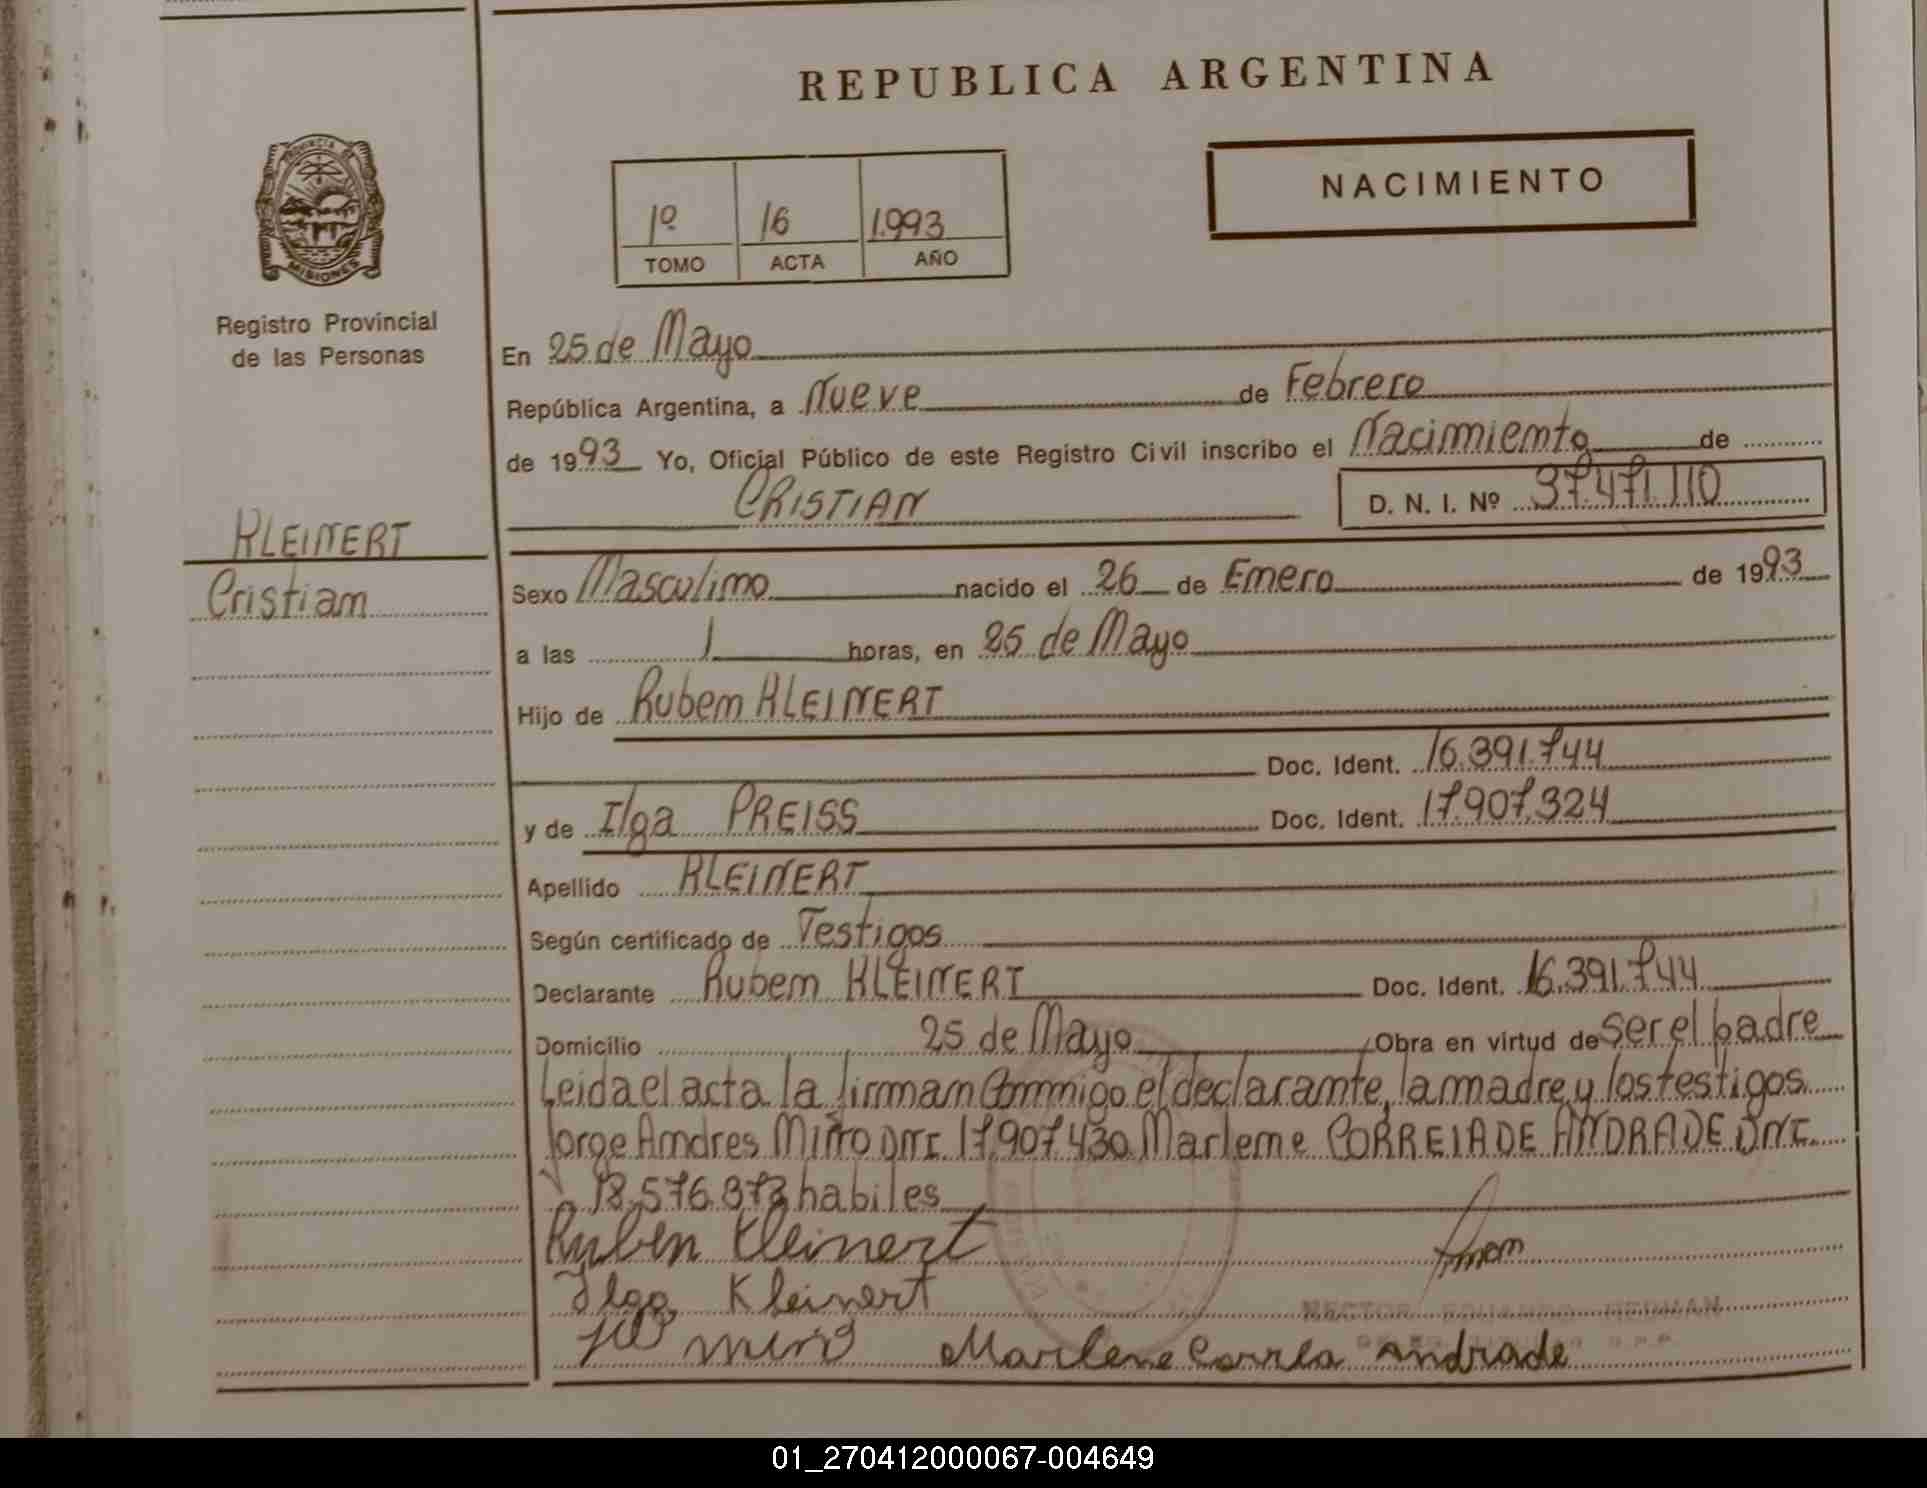 REPUBLICA ARGENTINA
PROVINCIA DE
MISIONES
Registro Provincial
de las Personas
1º 16 1.993
TOMO ACTA AÑO
NACIMIENTO
En 25 de Mayo
República Argentina, a Nueve de Febrero
de 1993 Yo, Oficial Público de este Registro Civil inscribo el Nacimiento de
CRISTIAN D. N. I. Nº 37.471.110
KLEINERT
Cristiam
Sexo Masculimo nacido el 26 de Emero de 1993
a las 1 horas, en 25 de Mayo
Hijo de Rubem KLEINERT
Doc. Ident. 16.391.744
y de Ilga PREISS Doc. Ident. 17.907.324
Apellido KLEINERT
Según certificado de Testigos
Declarante Rubem KLEINERT Doc. Ident. 16.391.744
Domicilio 25 de Mayo Obra en virtud de ser el padre
Leida el acta la firmam Commigo el declaramte, la madre y los testigos
Jorge Amdres MIÑO DNI. 17.907.430 Marleme CORREIA DE ANDRADE DNI.
18.576.373 habiles
Ruben Kleinert
Ilga Kleinert
HECTOR EDUARDO
miño Marlene Correa Andrade
01_270412000067-004649